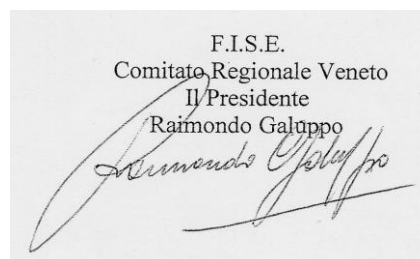 F.I.S.E.
Comitato Regionale Veneto
Il Presidente
Raimondo Galuppo
Raimondo Galuppo